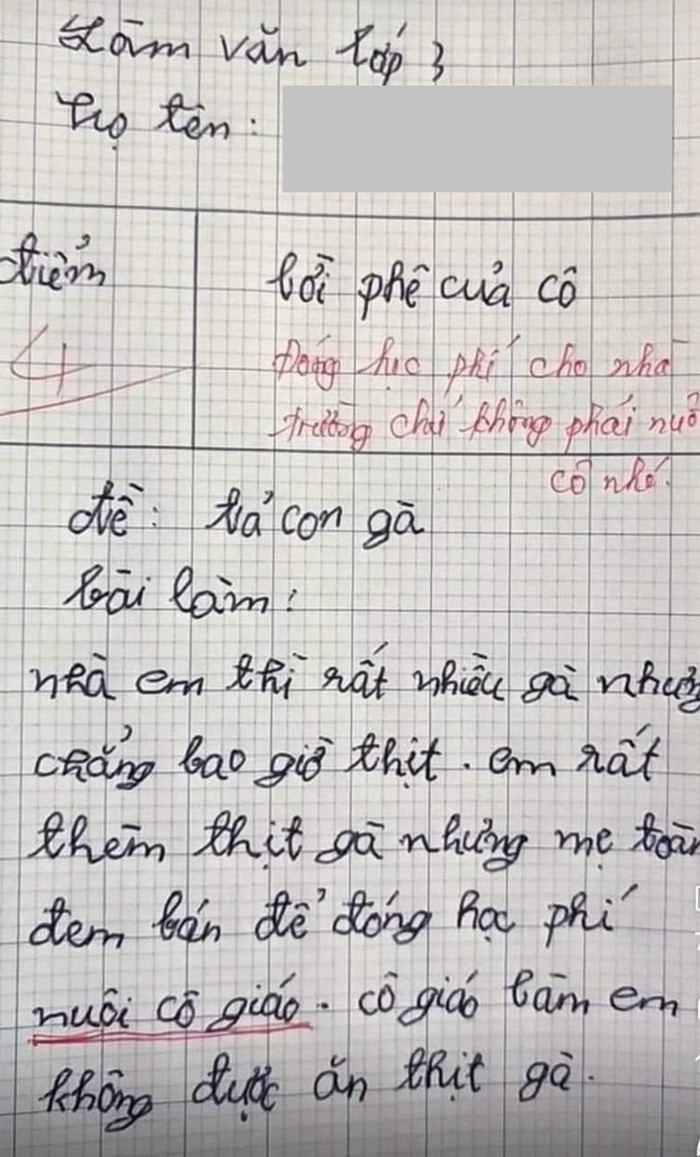 Làm văn lớp 3
Họ tên:
điểm
lời phê của cô
4
Đóng học phí cho nhà
trường chứ không phải nuô
cô nhé.
đề: tả con gà
bài làm:
nhà em thì rất nhiều gà nhưng
chẳng bao giờ thịt. em rất
thèm thịt gà nhưng mẹ toàn
đem bán để đóng học phí
nuôi cô giáo. cô giáo làm em
không được ăn thịt gà.